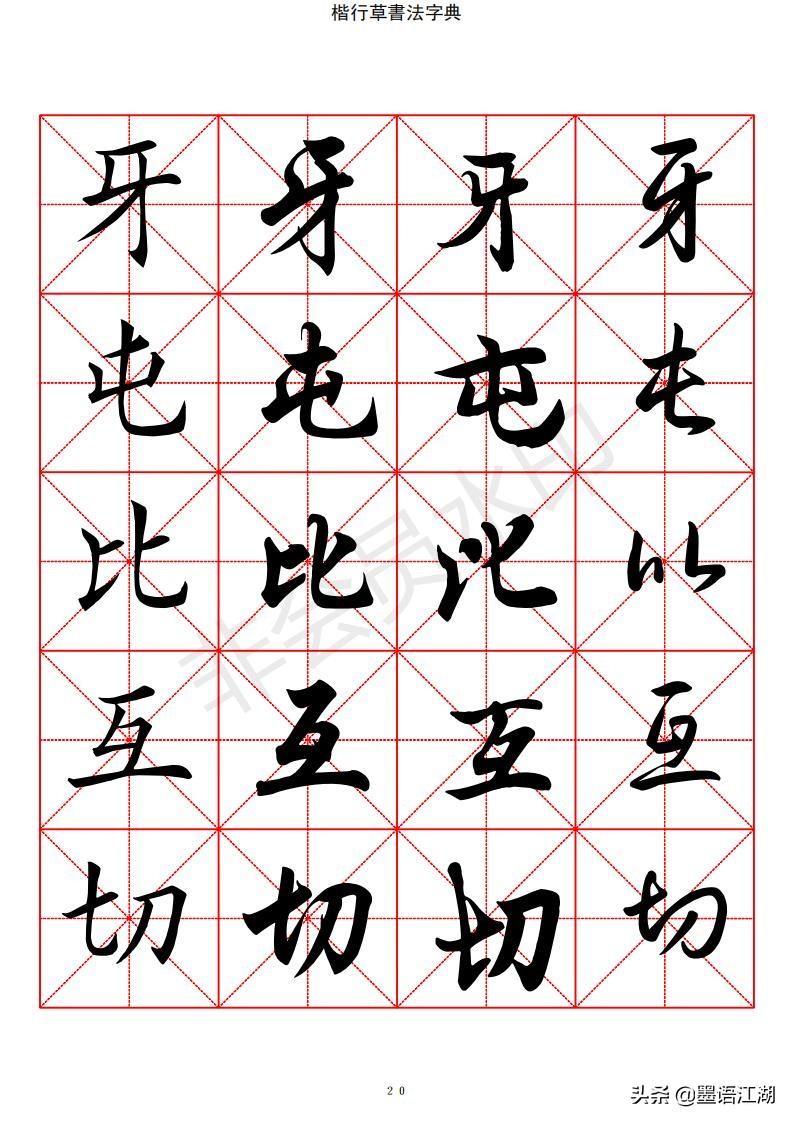 楷行草書法字典
牙 牙 牙 牙
屯 屯 屯 屯
比 比 比 比
互 互 互 互
切 切 切 切
非会员水印
20
头条 @墨语江湖